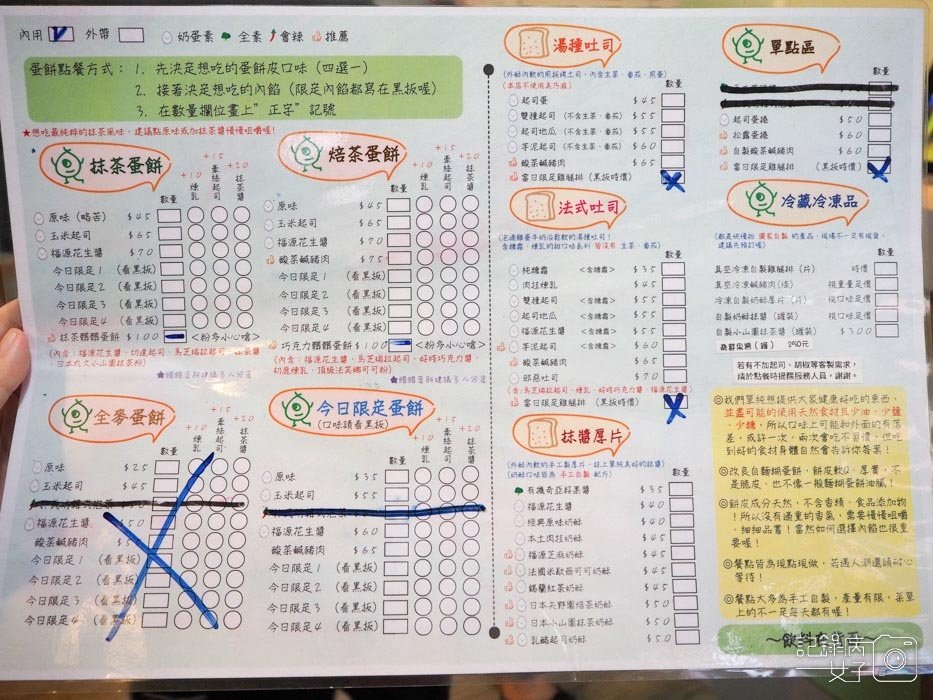 內用 外帶 奶蛋素 全素 會辣 推薦
蛋餅點餐方式：1. 先決定想吃的蛋餅皮口味（四選一）
2. 接著決定想吃的內餡（限定內餡都寫在黑板喔）
3. 在數量欄位畫上"正字"記號
★想吃最純粹的抹茶風味，建議點原味或加抹茶醬慢慢咀嚼喔！
抹茶蛋餅
數量 +10煉乳 +15牽絲起司 +20抹茶醬
原味（略苦） $45
玉米起司 $65
福源花生醬 $70
今日限定1 （看黑板）
今日限定2 （看黑板）
今日限定3 （看黑板）
今日限定4 （看黑板）
抹茶髒髒蛋餅 $100 <粉多小心嗆>
日本丸久小山園抹茶粉）
焙茶蛋餅
數量 +10煉乳 +15牽絲起司 +20抹茶醬
原味 $45
玉米起司 $65
福源花生醬 $70
酸菜鹹豬肉 $75
今日限定1 （看黑板）
今日限定2 （看黑板）
今日限定3 （看黑板）
今日限定4 （看黑板）
巧克力髒髒蛋餅 $100 <粉多小心嗆>
（內含：福源花生醬、馬芝瑞拉起司、好時巧克力醬、
初鹿煉乳、頂級法芙娜可可粉）
全麥蛋餅
數量 +10煉乳 +15牽絲起司 +20抹茶醬
原味 $25
玉米起司 $45
福源花生醬 $50
酸菜鹹豬肉
今日限定1 （看黑板）
今日限定2 （看黑板）
今日限定3 （看黑板）
今日限定4 （看黑板）
今日限定蛋餅
（口味請看黑板）
數量 +10煉乳 +15牽絲起司 +20抹茶醬
原味 $35
玉米起司 $55
福源花生醬 $60
酸菜鹹豬肉 $65
今日限定1 （看黑板）
今日限定2 （看黑板）
今日限定3 （看黑板）
今日限定4 （看黑板）
湯種吐司
（本店不使用美乃滋）
數量
起司蛋 $45
雙種起司 （不含生菜、番茄） $55
起司地瓜 （不含生菜、番茄） $55
芋泥起司 （不含生菜、番茄） $60
酸菜鹹豬肉 $65
當日限定雞腿排（黑板時價）
法式吐司
數量
純糖霜 <含糖霜> $35
肉桂煉乳 $45
雙種起司 <含糖霜> $55
起司地瓜 <含糖霜> $55
福源花生醬 <含糖霜> $55
芋泥起司 <含糖霜> $60
酸菜鹹豬肉 $65
邪惡吐司 $70
（含：馬芝瑞拉起司、煉乳、好時巧克力醬、福源花生醬）
當日限定雞腿排 （黑板時價）
抹醬厚片
（奶酥口味皆為 手工自製 配方）
數量
有機奇亞籽果醬 $35
福源花生醬 $40
經典原味奶酥 $40
本土肉桂奶酥 $45
福源芝麻奶酥 $45
法國米歇爾可可奶酥 $45
錫蘭紅茶奶酥 $45
日本矢野園焙茶奶酥 $50
日本小山園抹茶奶酥 $50
乳酪起司奶酥 $50
單點區
數量
起司蛋捲 $50
松露蛋捲 $60
自製酸菜鹹豬肉 $60
當日限定雞腿排 （黑板時價）
冷藏冷凍品
建議先預訂喔）
數量
真空冷凍自製雞腿排（片） 時價
真空冷凍鹹豬肉（條） 視重量定價
冷凍自製奶酥厚片（片） 視口味定價
自製奶酥抹醬（罐裝） 視口味定價
自製小山園抹茶醬（罐裝） $300
250元
若有不加起司、胡椒等客製需求，
請於點餐時提醒服務人員，謝謝。
◎我們單純想提供大家健康好吃的東西，
並盡可能的使用天然食材且少油、少鹽
、少糖，所以口味上可能和外面的有落
差，或許一次、兩次會吃不習慣，但吃
到好的食材身體自然會告訴你答案！
◎改良自麵糊蛋餅，餅皮軟Q、厚實，不
是脆皮，也不像一般麵糊蛋餅油膩！
◎餅皮成分天然，不含香精、食品添加物
！所以沒有過重的香氣，需要慢慢咀嚼
、細細品嘗！當然如何選擇內餡也很重
要喔！
◎餐點皆為現點現做，若遇人潮還請耐心
等待！
◎餐點大多為手工自製，產量有限，菜單
上的不一定每天都有喔！
記錄病女子